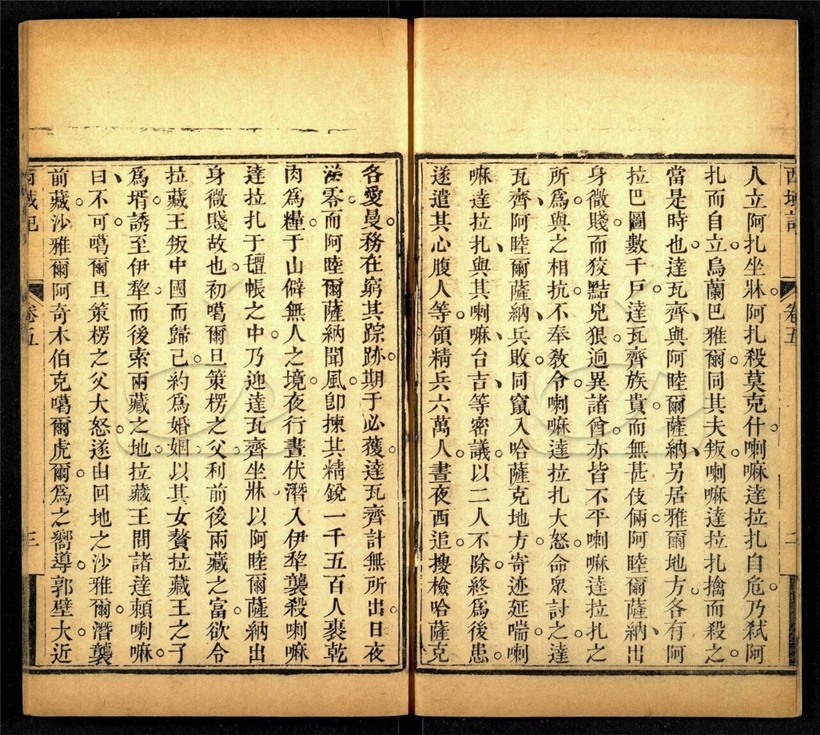 西域記 卷五 二
人立阿扎坐牀阿扎殺莫克什喇嘛達拉扎自危乃弒阿
扎而自立烏蘭巴雅爾同其夫叛喇嘛達拉扎擒而殺之
當是時也達瓦齊與阿睦爾薩納另居雅爾地方各有阿
拉巴圖數千戶達瓦齊族貴而無甚伎倆阿睦爾薩納出
身微賤而狡黠兇狠迥異諸酋亦皆不平喇嘛達拉扎之
所為與之相抗不奉教令喇嘛達拉扎大怒命眾討之達
瓦齊阿睦爾薩納兵敗同竄入哈薩克地方寄迹延喘喇
嘛達拉扎與其喇嘛台吉等密議以二人不除終為後患
遂遣其心腹人等領精兵六萬人晝夜西追搜檢哈薩克
各愛曼務在窮其踪跡期于必獲達瓦齊計無所出日夜
涕零而阿睦爾薩納聞風卽揀其精銳一千五百人裹乾
肉為糧于山僻無人之境夜行晝伏潛入伊犁襲殺喇嘛
達拉扎于氊帳之中乃迎達瓦齊坐牀以阿睦爾薩納出
身微賤故也初噶爾旦策楞之父利前後兩藏之富欲令
拉藏王叛中國而歸己約為婚姻以其女贅拉藏王之子
為壻誘至伊犁而後索兩藏之地拉藏王問諸達賴喇嘛
曰不可噶爾旦策楞之父大怒遂出回地之沙雅爾潛襲
前藏沙雅爾阿奇木伯克噶爾虎爾為之嚮導郭壁大近
西藏記 卷五 三